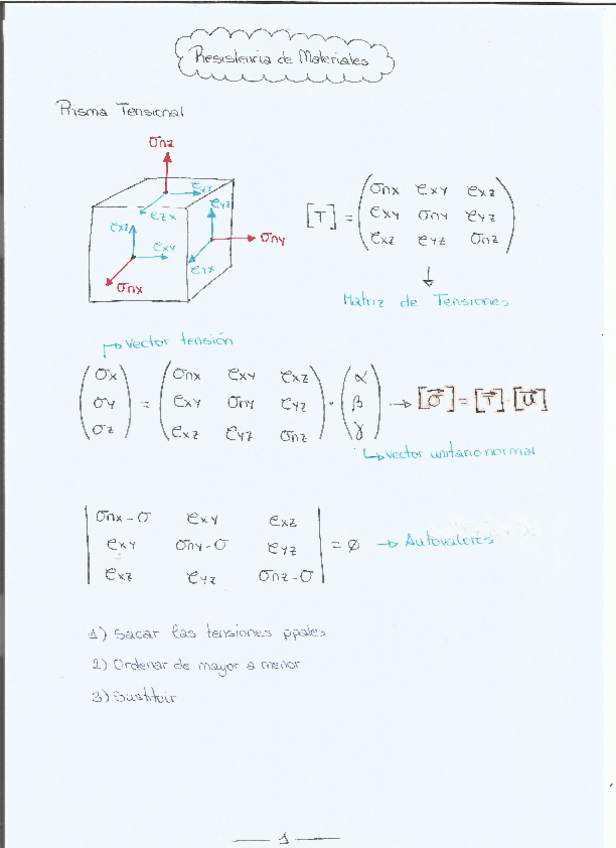 Resistencia de Materiales
Prisma Tensional
σnz
τxy
τzx
τyz
τxz
τxy
σny
τyx
σnx
[T] = ( σnx τxy τxz
τxy σny τyz
τxz τyz σnz )
Matriz de Tensiones
vector tensión
( σx ) = ( σnx τxy τxz ) · ( α )
( σy ) ( τxy σny τyz ) ( β ) → [σ⃗] = [T⃗] · [u⃗]
( σz ) ( τxz τyz σnz ) ( γ )
vector unitario normal
| σnx - σ τxy τxz |
| τxy σny - σ τyz | = ø → Autovalores
| τxz τyz σnz - σ |
1) Sacar las tensiones ppales
2) Ordenar de mayor a menor
3) Sustituir
1